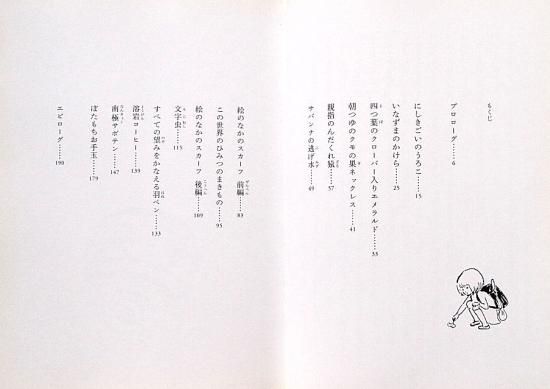 もくじ
プロローグ……6
にしきごいのうろこ……15
いなずまのかけら……25
四つ葉のクローバー入りエメラルド……33
朝つゆのクモの巣ネックレス……41
サバンナの逃げ水……49
親指のんだくれ猿……57
絵のなかのスカーフ 前編……83
この世界のひみつのまきもの……95
絵のなかのスカーフ 後編……109
文字虫……115
すべての望みをかなえる羽ペン……133
溶岩コーヒー……139
南極サボテン……147
ぼたもちお手玉……179
エピローグ……190